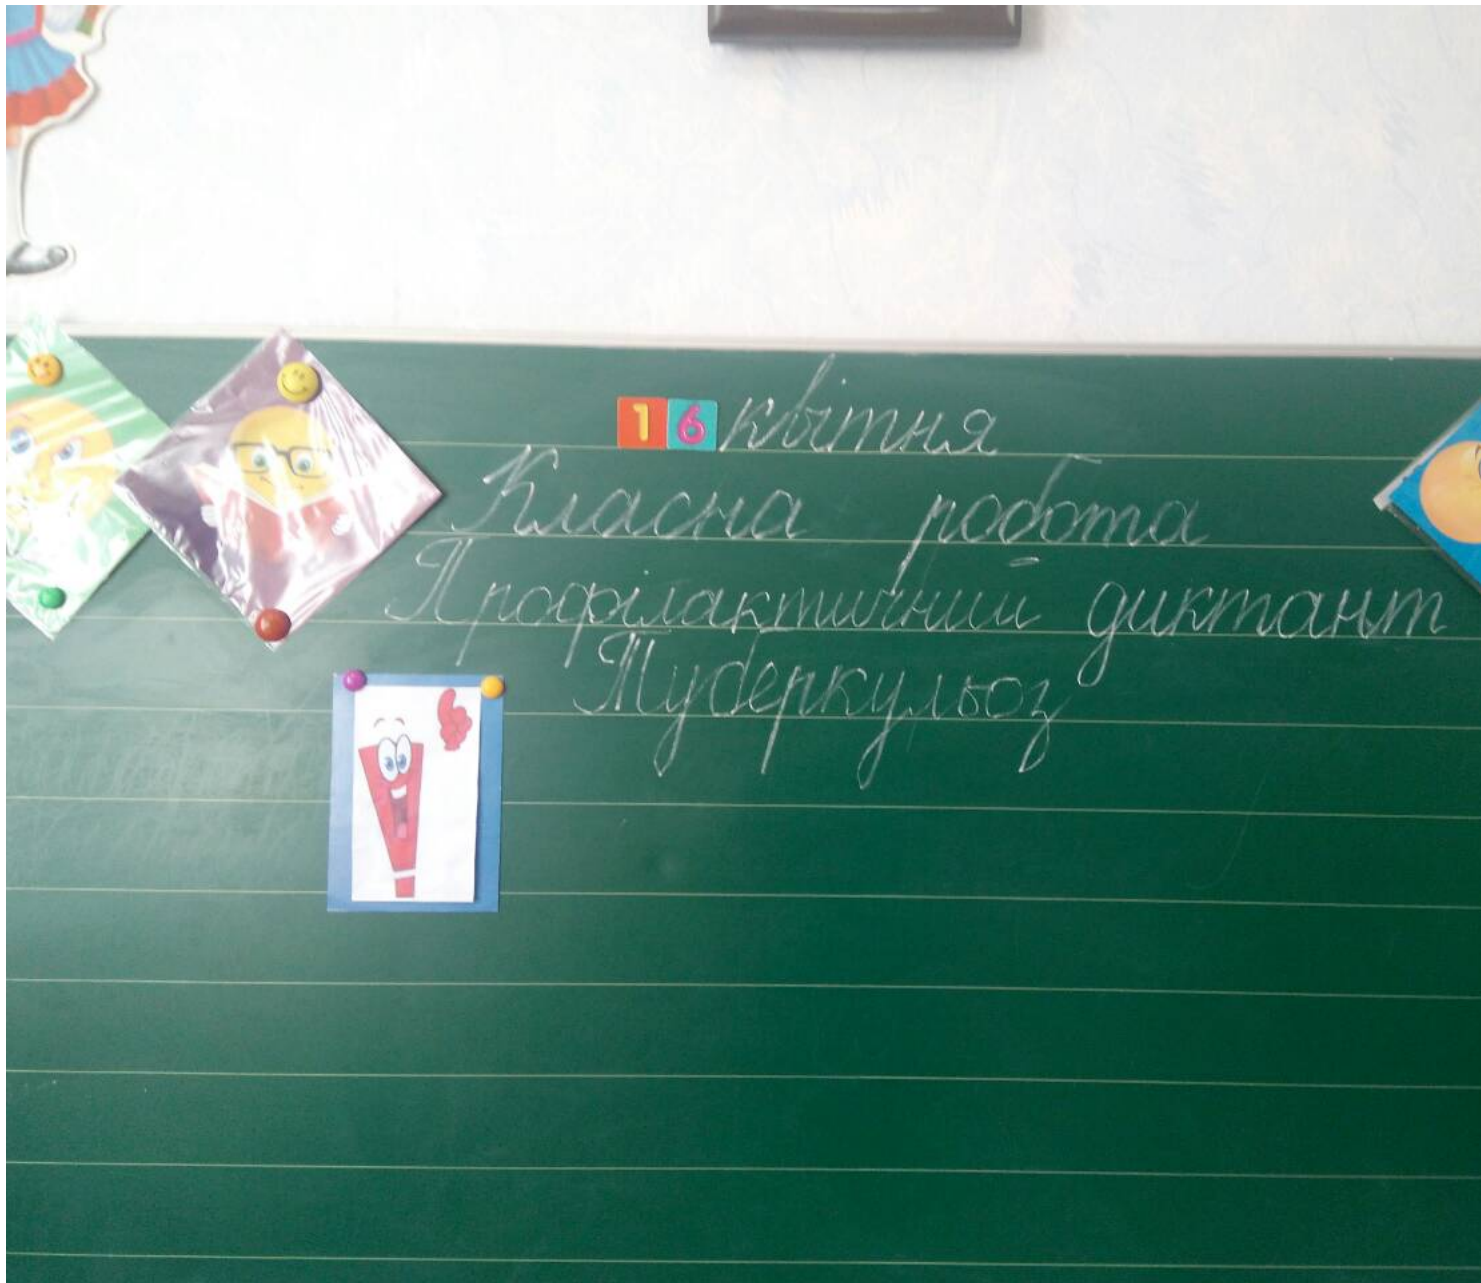 16 квітня
Класна робота
Профілактичний диктант
Туберкульоз